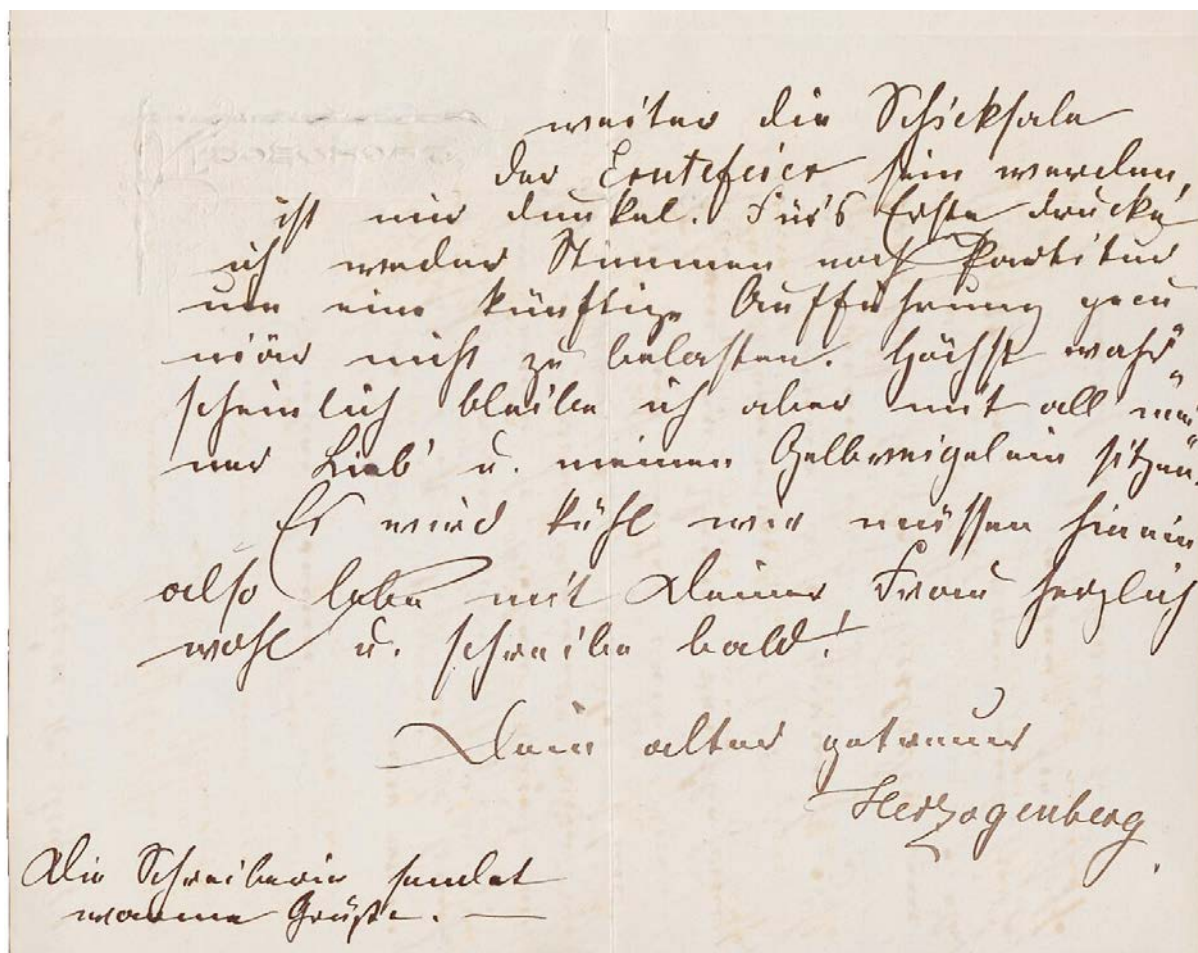 weiter die Schicksale
der Erntefeier sein werden,
ist mir dunkel. Für's Erste drucke
ich weder Stimmen noch Partitur
um eine künftige Aufführung pecu
niär nicht zu belasten. Höchst wahr„
scheinlich bleibe ich aber mit all mei„
ner Lieb' u. meinen Gelbveigelein sitzen.
Es wird kühl wir müssen hinein
also lebe mit Deiner Frau herzlich
wohl u. schreibe bald!
Dein alter getreuer
Herzogenberg.
Die Schreiberin sendet
warme Grüße. —